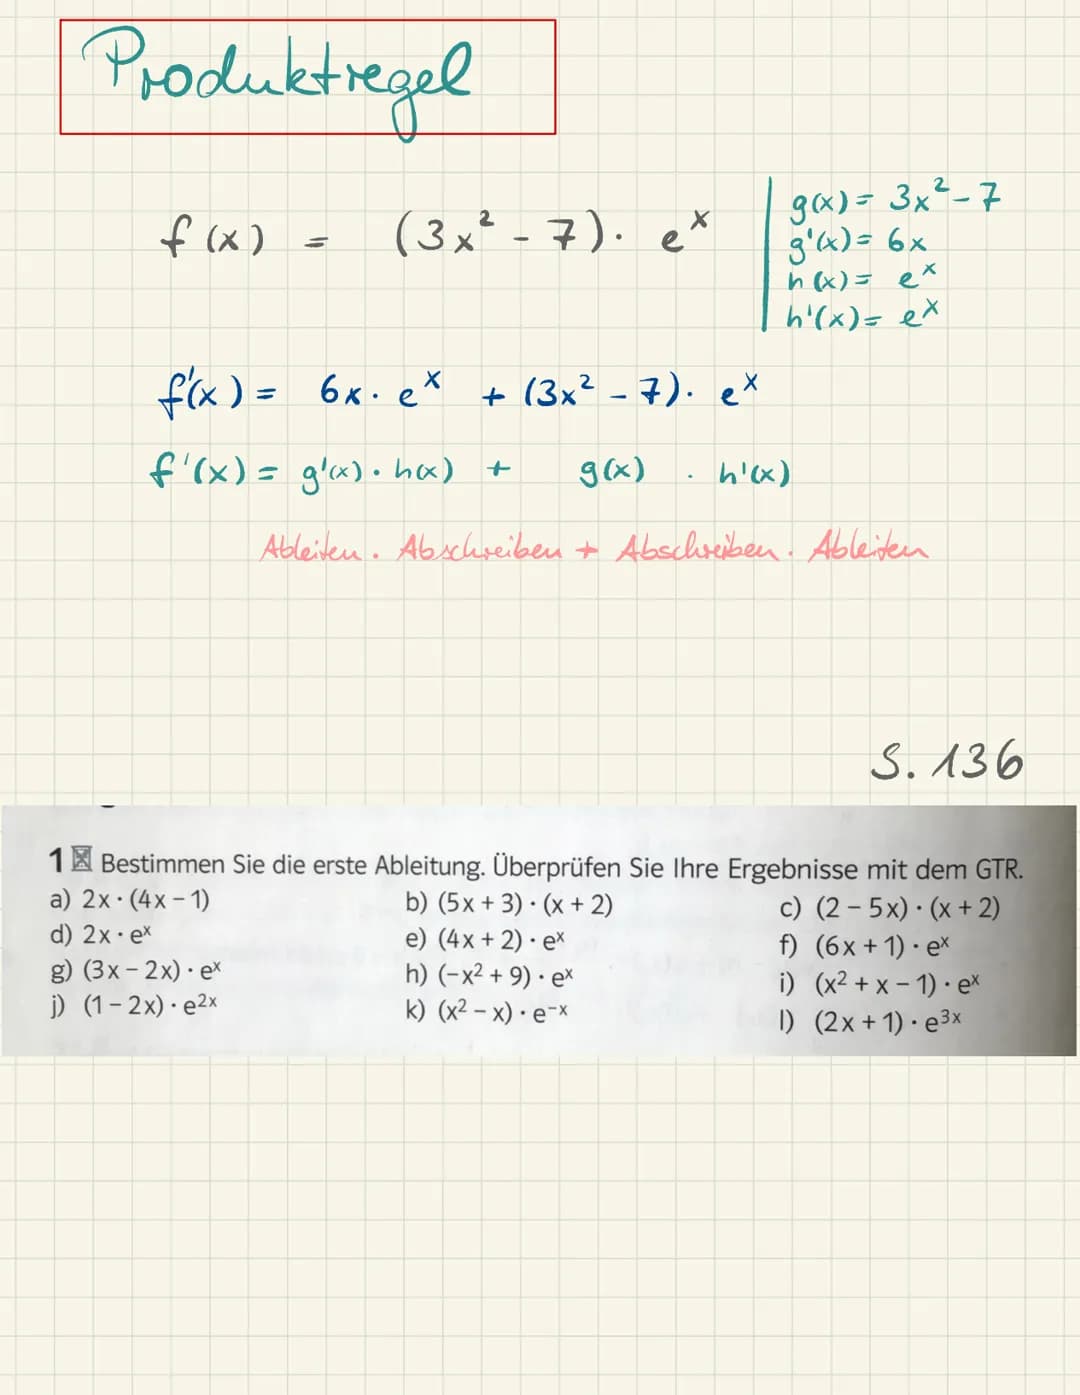 Produktregel
f(x) = (3x² - 7) · eˣ
g(x) = 3x² - 7
g'(x) = 6x
h(x) = eˣ
h'(x) = eˣ
f'(x) = 6x · eˣ + (3x² - 7) · eˣ
f'(x) = g'(x) · h(x) + g(x) · h'(x)
Ableiten · Abschreiben + Abschreiben · Ableiten
S. 136
1 Bestimmen Sie die erste Ableitung. Überprüfen Sie Ihre Ergebnisse mit dem GTR.
a) 2x · (4x – 1) b) (5x + 3) · (x + 2) c) (2 – 5x) · (x + 2)
d) 2x · eˣ e) (4x + 2) · eˣ f) (6x + 1) · eˣ
g) (3x – 2x) · eˣ h) (–x² + 9) · eˣ i) (x² + x – 1) · eˣ
j) (1 – 2x) · e²ˣ k) (x² – x) · e⁻ˣ l) (2x + 1) · e³ˣ